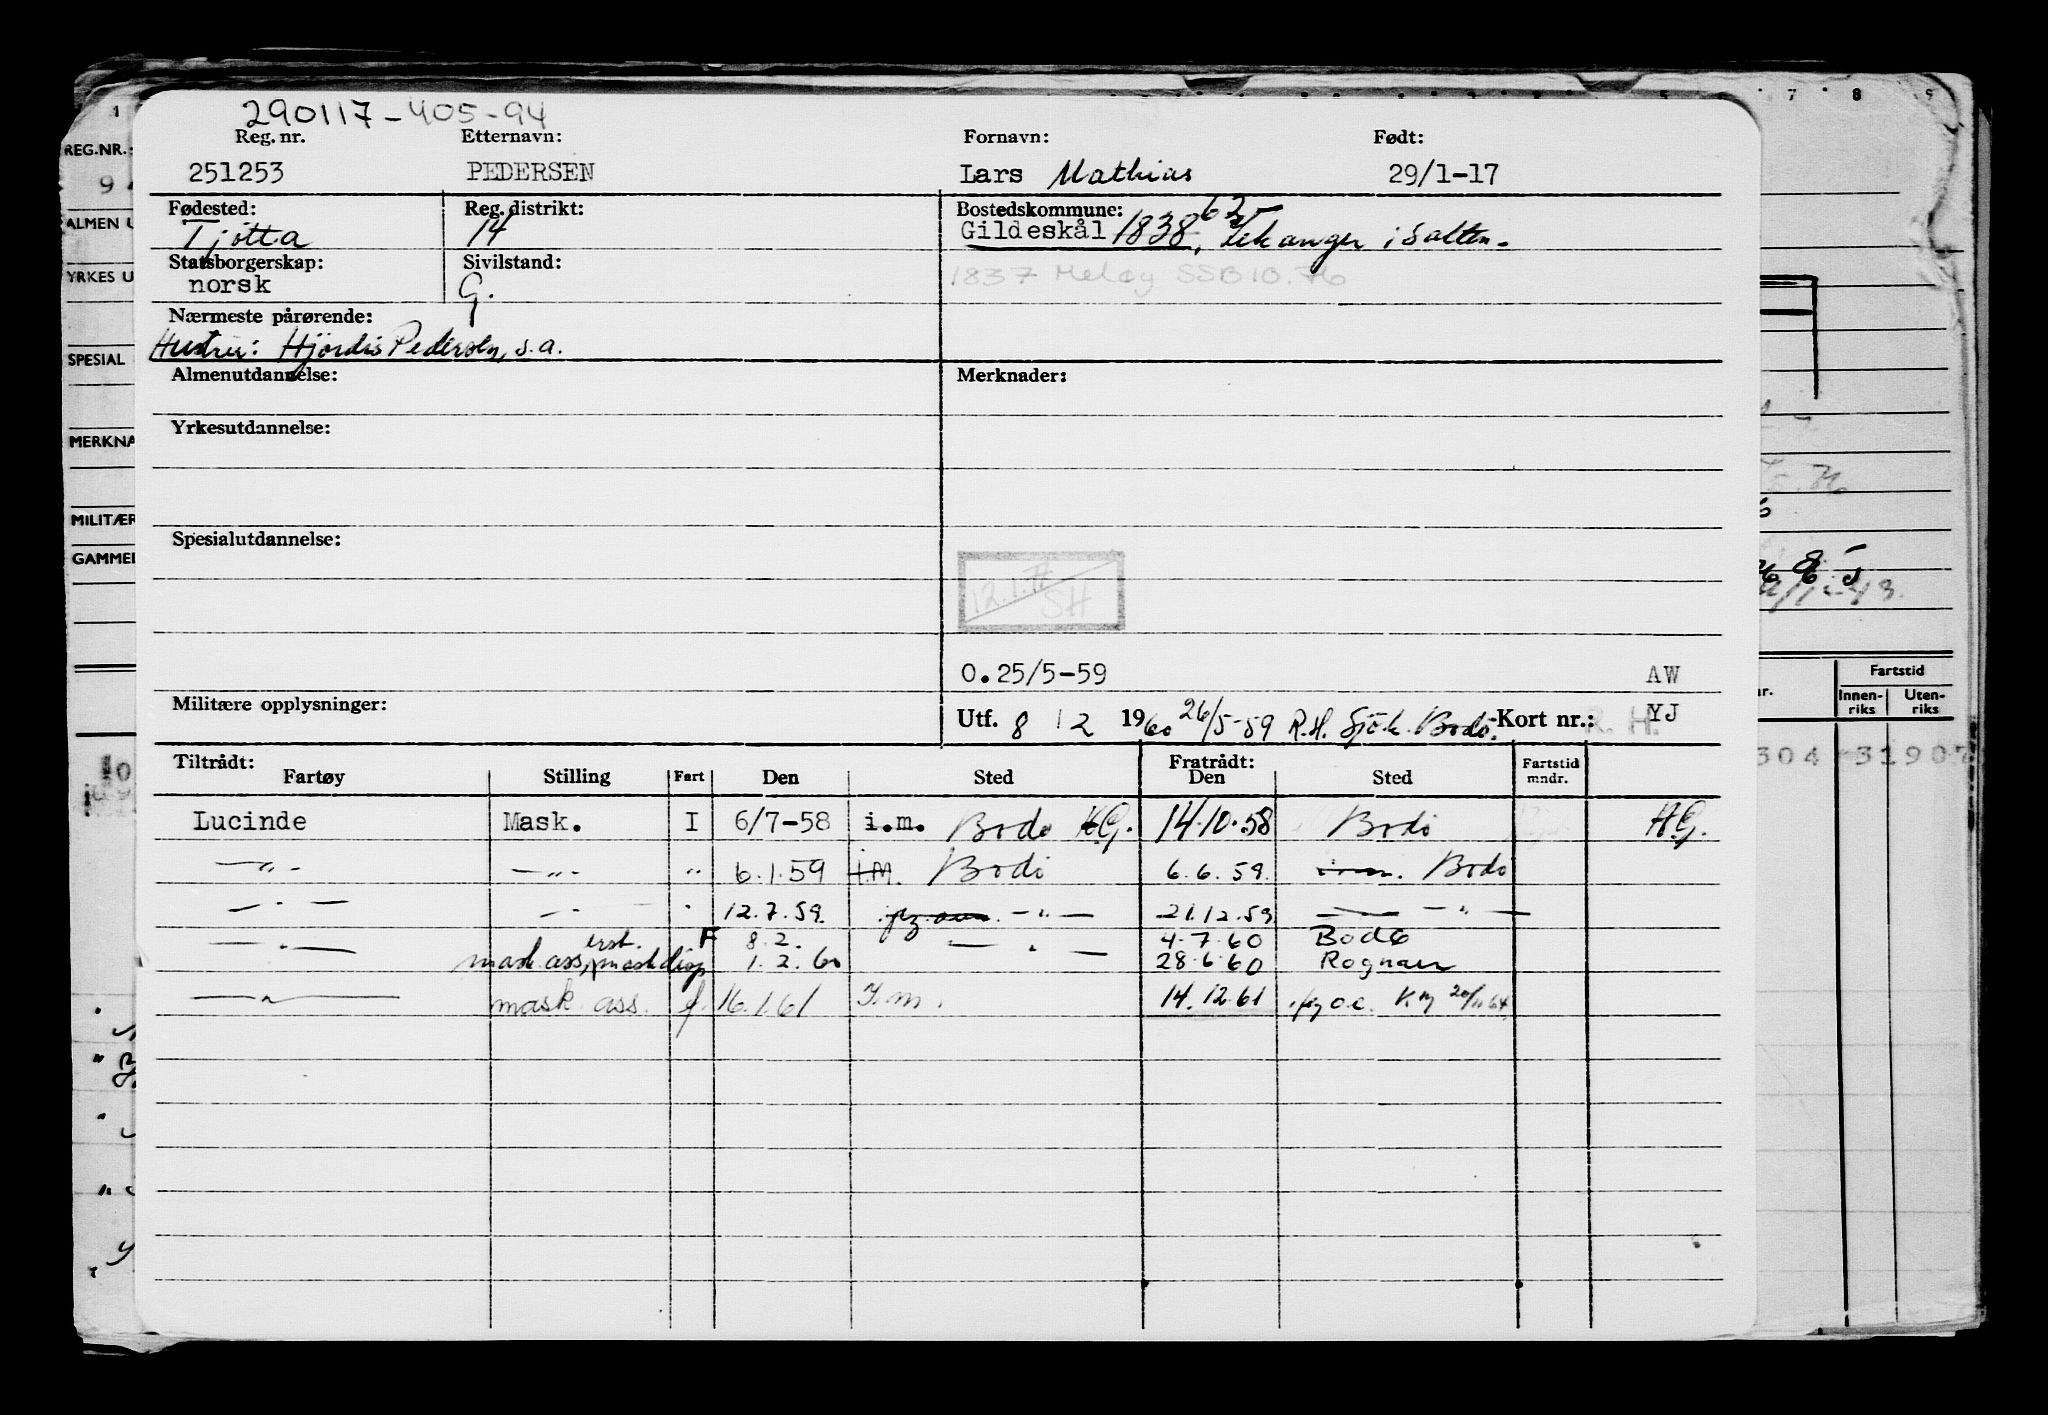 290117-405-94
Reg. nr. Etternavn: Fornavn: Født:
251253 PEDERSEN Lars Mathias 29/1-17
Fødested: Reg. distrikt: Bostedskommune:
Tjøtta 14 Gildeskål 1838 i Salten.
Statsborgerskap: Sivilstand:
norsk G. 1837 Meløy SSB 10.76
Nærmeste pårørende:
Hustru: Hjørdis Pedersen, s.a.
Almenutdannelse: Merknader:
Yrkesutdannelse:
Spesialutdannelse:
12.1.77 SH
O.25/5-59 AW
Militære opplysninger: Utf. 8 / 2 1960 26/5-59 R.H. Sjö.k. Bodö. Kort nr.: R. H. YJ
Tiltrådt: Fratrådt:
Fartøy Stilling Fart Den Sted Den Sted Fartstid mndr.
Lucinde Mask. I 6/7-58 i.m. Bodø HG. 14.10.58 Bodö HG.
—"— —"— " 6.1.59 i.m. Bodö 6.6.59. Bodö
—"— —"— " 12.7.59. —"— 21.12.59 —"—
—"— F 8.2. —"— 4.7.60 Bodø
mask. ass, 1.2.60 28.6.60 Rognan
—"— mask. ass. f. 16.1.61 I.m. 14.12.61 20/11 64
1 5 7 8 9
REG.NR.:
9
ALMEN U
YRKES U
SPESIAL
MERKNA
MILITÆR
GAMMEL
Fartstid
Innenriks Utenriks
304 31907